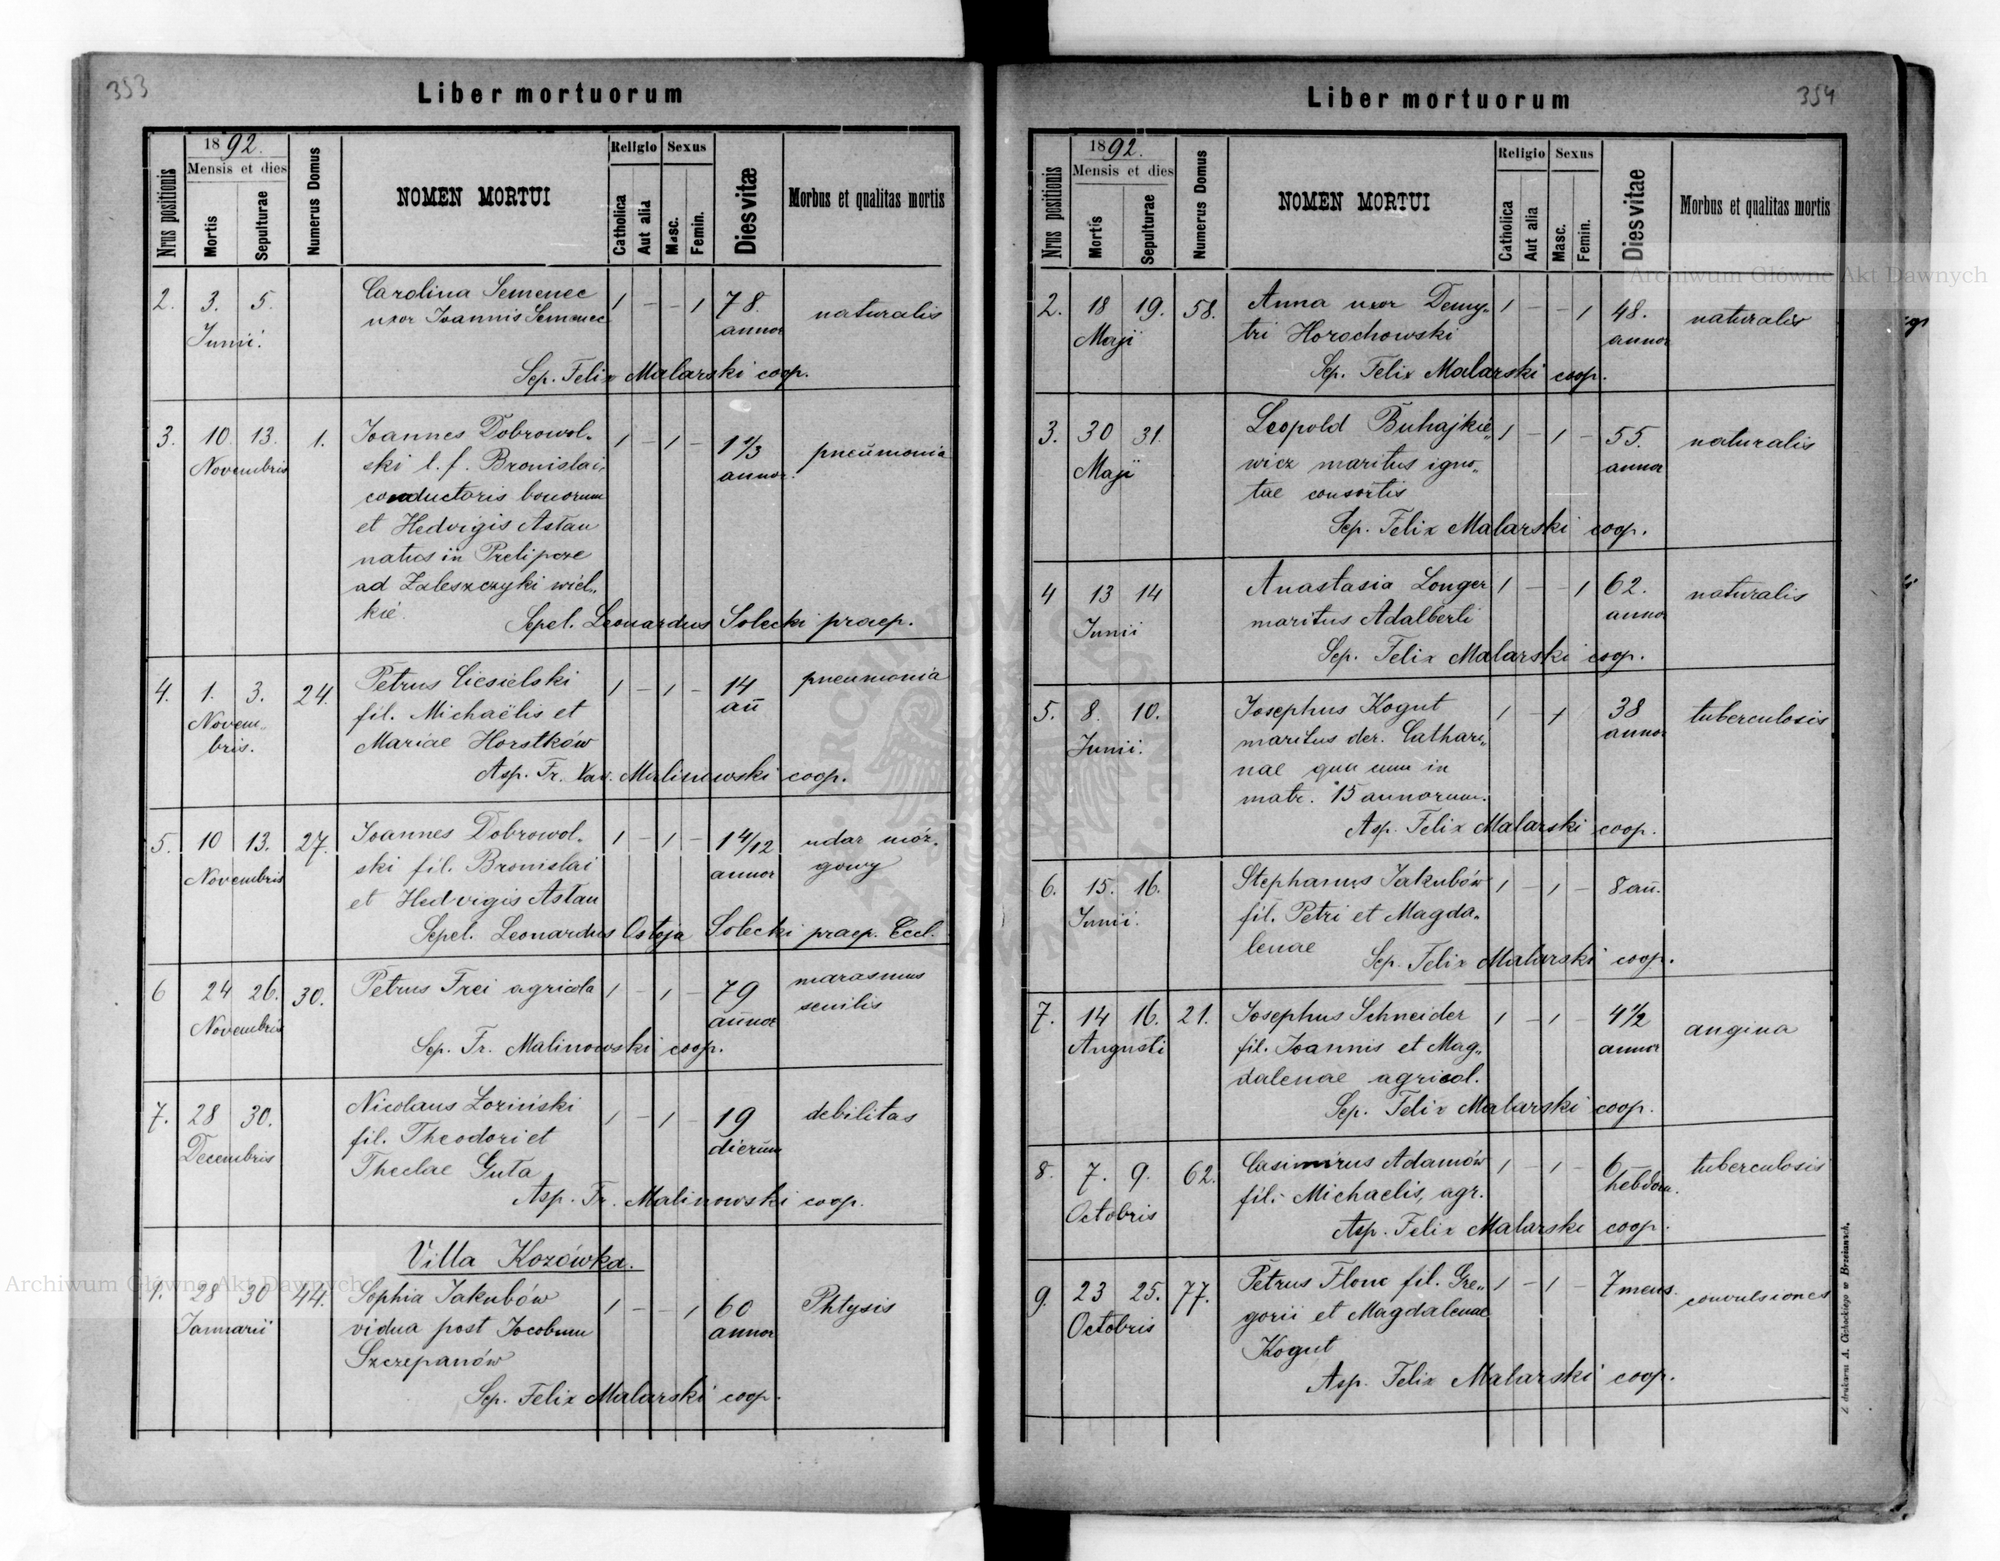 353
Liber mortuorum
Nrus positionis
1892.
Mensis et dies
Mortis
Sepulturae
Numerus Domus
NOMEN MORTUI
Religio
Catholica
Aut alia
Sexus
Masc.
Femin.
Dies vitæ
Morbus et qualitas mortis
2. 3. 5. Carolina Semenec 1 - - 1 78. naturalis
Junii. uxor Joannis Semenec annor
Sep. Felix Malarski coop.
3. 10. 13. 1. Joannes Dobrowol- 1 - 1 - 1 1/3 pneumonia
Novembris ski l. f. Bronislai, annor.
conductoris bonorum
et Hedvigis Astan
natus in Prelipcze
ad Zaleszczyki wiel-
kie.
Sepel. Leonardus Solecki praep.
4. 1. 3. 24. Petrus Ciesielski 1 - 1 - 14 pneumonia
Novem- fil. Michaëlis et an̄
bris. Mariae Horstków
Asp. Fr. Xav. Malinowski coop.
5. 10 13. 27. Joannes Dobrowol- 1 - 1 - 1 4/12 udar móz-
Novembris ski fil. Bronislai annor gowy
et Hedvigis Astan
Sepel. Leonardus Ostoja Solecki praep. Eccl.
6 24 26. 30. Petrus Frei agricola 1 - 1 - 79 marasmus
Novembris annor senilis
Sep. Fr. Malinowski coop.
7. 28 30. Nicolaus Łoziński 1 - 1 - 19 debilitas
Decembris fil. Theodori et dierum
Theclae Guta
Asp. Fr. Malinowski coop.
Villa Kozówka.
1. 28 30 44. Sophia Jakubów 1 - - 1 60 Phtysis
Januarii vidua post Jacobum annor
Szczepanów
Sep. Felix Malarski coop.
354
Liber mortuorum
Nrus positionis
1892.
Mensis et dies
Mortis
Sepulturae
Numerus Domus
NOMEN MORTUI
Religio
Catholica
Aut alia
Sexus
Masc.
Femin.
Dies vitae
Morbus et qualitas mortis
2. 18 19. 58. Anna uxor Demy- 1 - - 1 48. naturalis
Maji tri Horochowski annor
Sep. Felix Malarski coop.
3. 30 31. Leopold Buhajkie- 1 - 1 - 55. naturalis
Maji wicz maritus igno- annor
tae consortis
Sep. Felix Malarski coop.
4 13 14 Anastasia Longer 1 - - 1 62. naturalis
Junii maritus Adalberti annor
Sep. Felix Malarski coop.
5. 8. 10. Josephus Kogut 1 - 1 38 tuberculosis
Junii. maritus der. Cathari- annor
nae qua cum in
matr. 15 annorum.
Asp. Felix Malarski coop.
6. 15. 16. Stephanus Jakubów 1 - 1 - 8 an̄.
Junii. fil. Petri et Magda-
lenae
Sep. Felix Malarski coop.
7. 14 16. 21. Josephus Schneider 1 - 1 - 4 1/2 angina
Augusti fil. Joannis et Mag- annor
dalenae agricol.
Sep. Felix Malarski coop.
8. 7. 9. 62. Casimirus Adamów 1 - 1 - 6 tuberculosis
Octobris fil. Michaelis, agr. hebdom.
Asp. Felix Malarski coop.
9. 23 25. 77. Petrus Flonc fil. Gre- 1 - 1 - 7 mens. convulsiones
Octobris gorii et Magdalenae
Kogut
Asp. Felix Malarski coop.
Z drukarni A. Cichockiego w Brzeżanach.
Archiwum Główne Akt Dawnych
Archiwum Główne Akt Dawnych